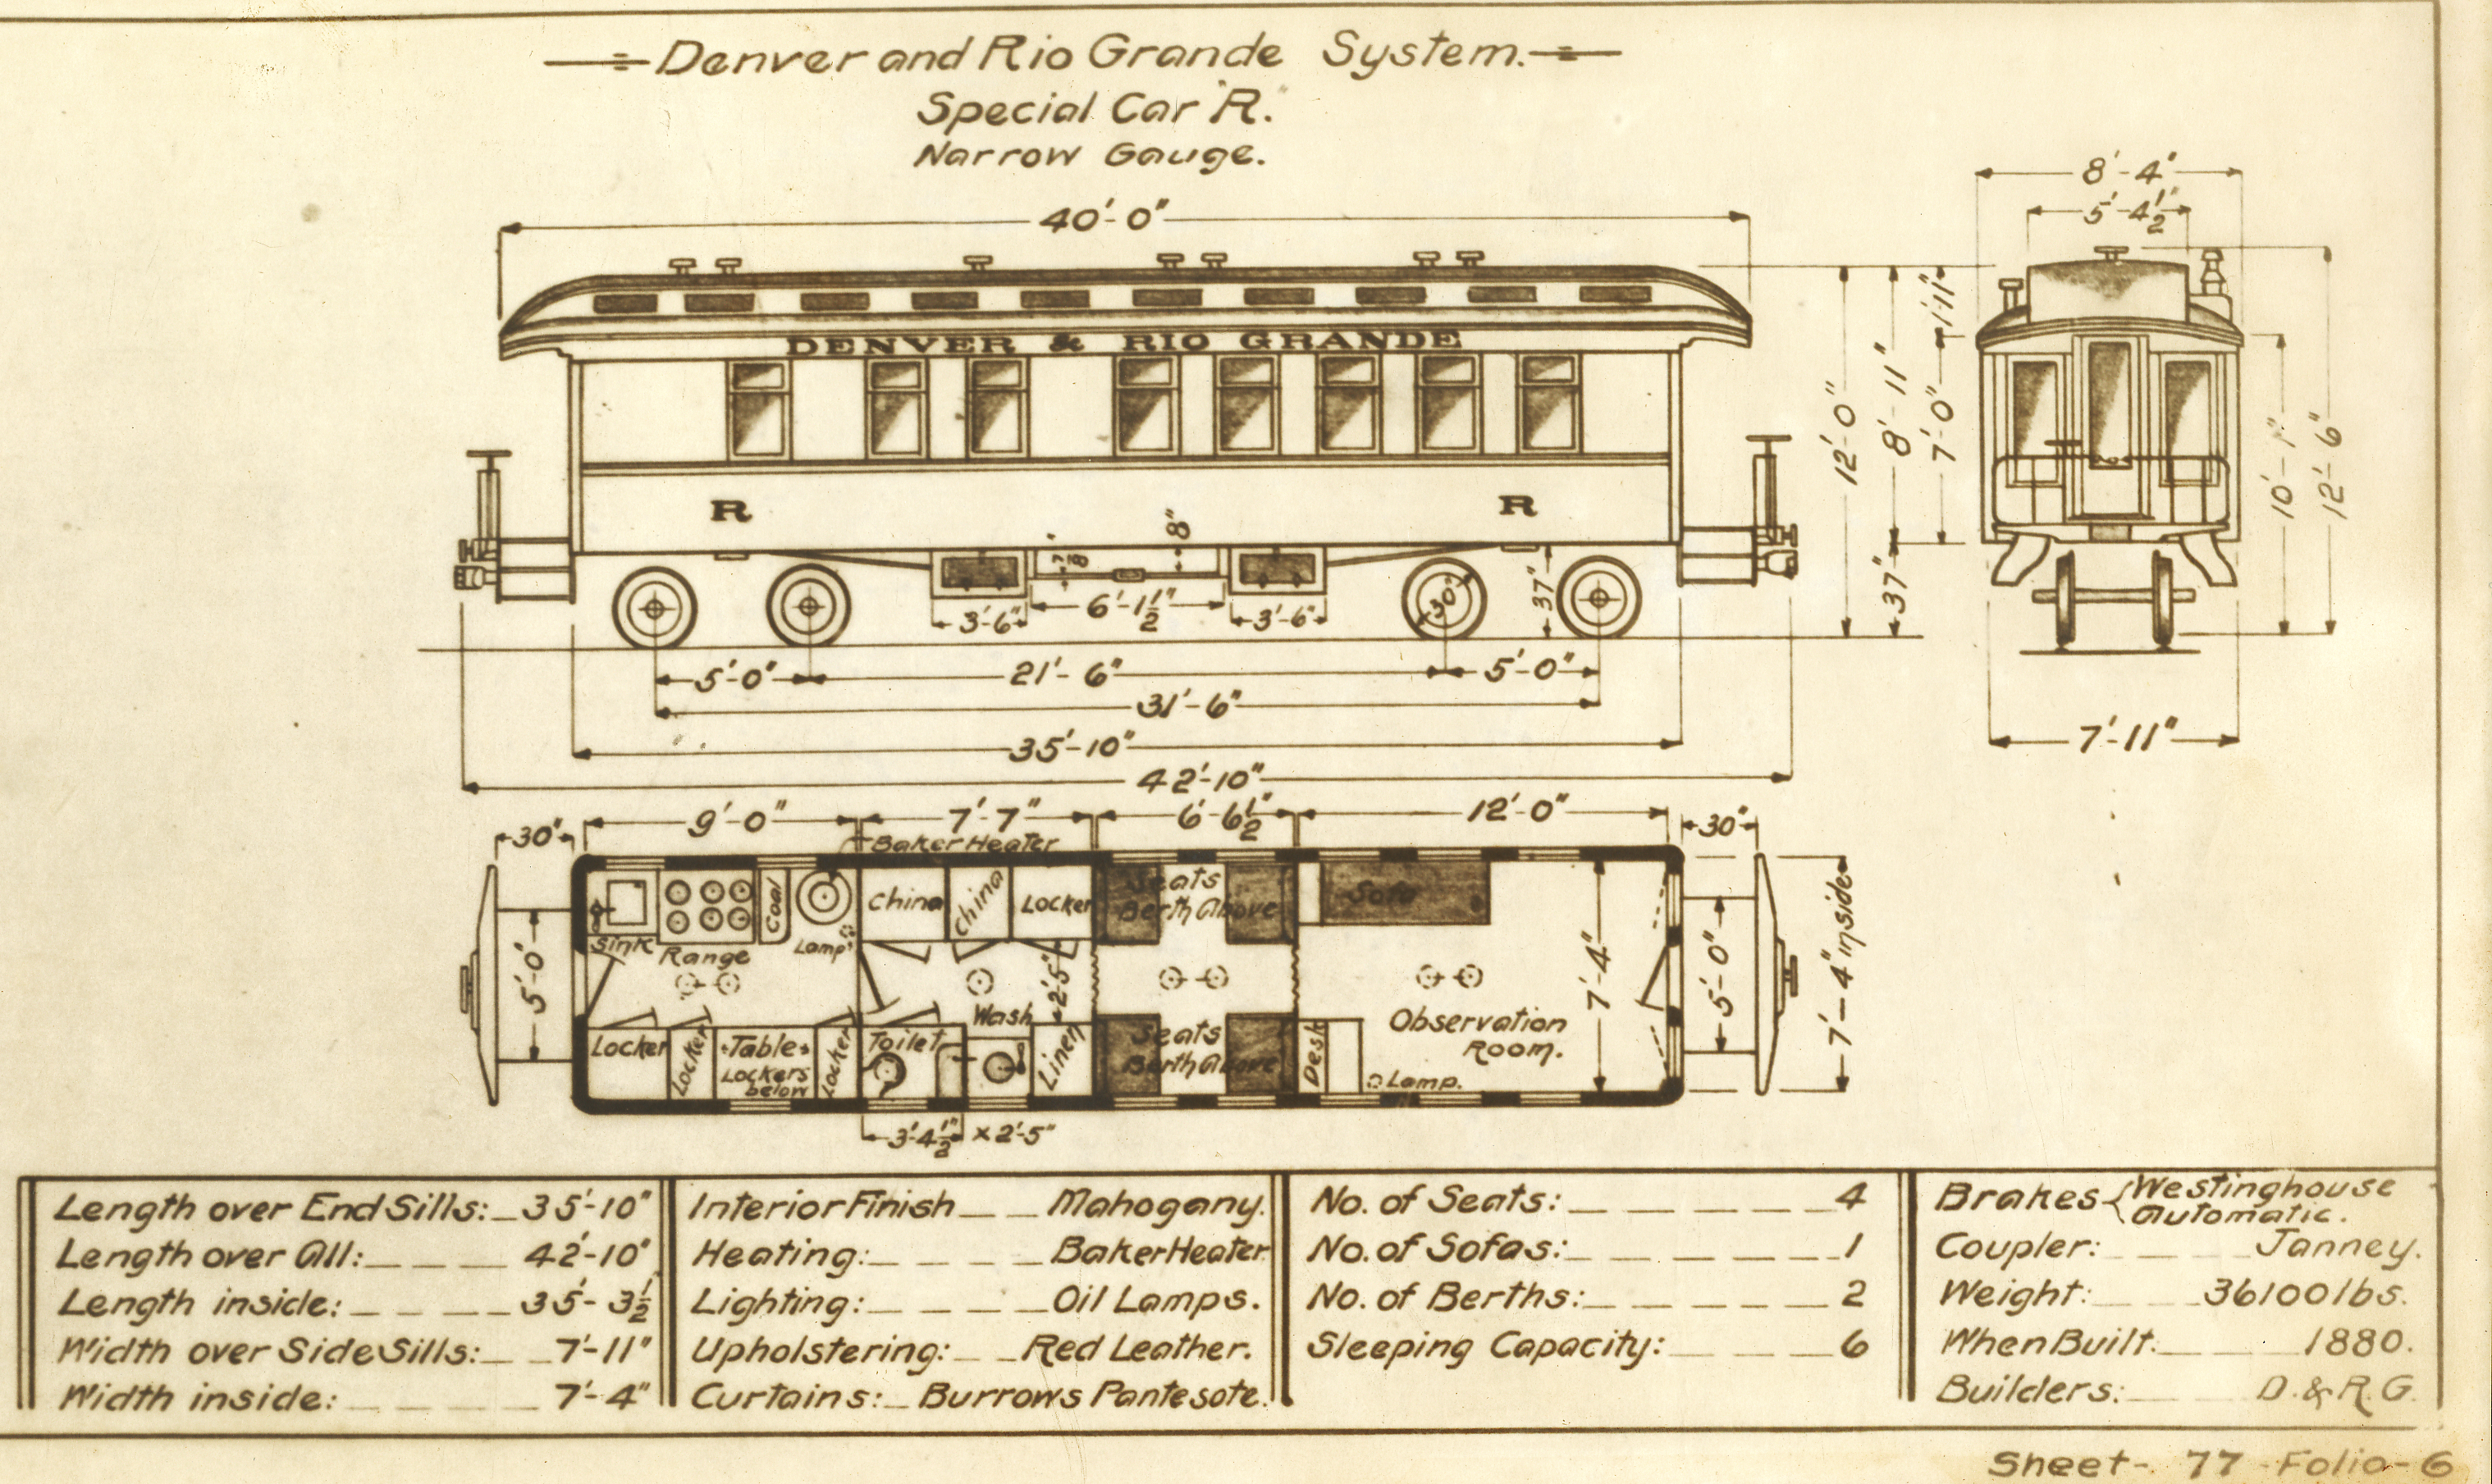 Denver and Rio Grande System.
Special Car "R."
Narrow Gauge.
40'-0"
8'-4"
5'-4½"
DENVER & RIO GRANDE
R
R
12'-0"
8'-11"
1'-11"
7'-0"
37"
10'-1"
12'-6"
7/8"
8"
3'-6"
6'-1½"
3'-6"
30"
37"
5'-0"
21'-6"
5'-0"
31'-6"
35'-10"
42'-10"
7'-11"
30"
9'-0"
7'-7"
6'-6½"
12'-0"
30"
Baker Heater
Sink
Range
Coal
Lamp
China
China
Locker
Seats
Berth Above
Sofa
5'-0"
2'-5"
7'-4"
5'-0"
7'-4" inside
Locker
Locker
Table
Lockers
below
Locker
Toilet
Wash
Linen
Seats
Berth Above
Desk
Observation
Room.
Lamp.
3'-4½" x 2'-5"
Length over End Sills: 35'-10"
Length over All: 42'-10"
Length inside: 35'-3½
Width over Side Sills: 7'-11"
Width inside: 7'-4"
Interior Finish Mahogany.
Heating: Baker Heater
Lighting: Oil Lamps.
Upholstering: Red Leather.
Curtains: Burrows Pantesote.
No. of Seats: 4
No. of Sofas: 1
No. of Berths: 2
Sleeping Capacity: 6
Brakes { Westinghouse
Automatic.
Coupler: Janney.
Weight: 36100 lbs.
When Built: 1880.
Builders: D. & R. G.
Sheet- 77 -Folio-6